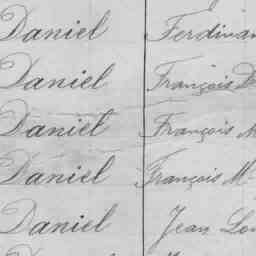 Daniel Ferdinan
Daniel François D
Daniel François M
Daniel François M
Daniel Jean Lou